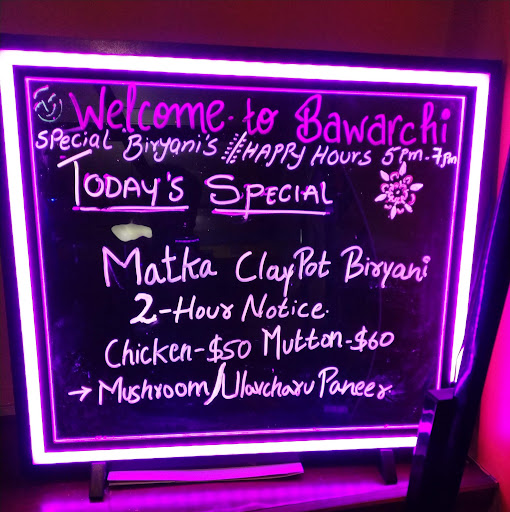 Welcome to Bawarchi
Special Biryani's Happy Hours 5pm-7pm
Today's Special
Matka Clay Pot Biryani
2-Hour Notice
Chicken-$50 Mutton-$60
→ Mushroom/Ulavcharu Paneer